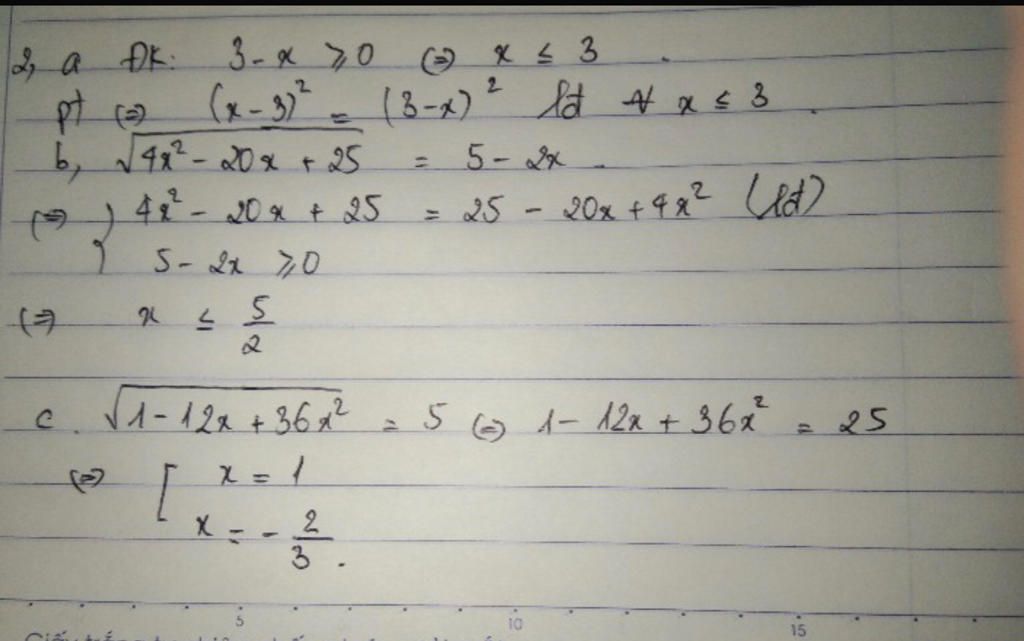 2, a ĐK: 3 - x ⩾ 0 (=) x ≤ 3.
pt (=) (x - 3)² = (3 - x)² lđ ∀ x ≤ 3.
b, √(4x² - 20x + 25) = 5 - 2x.
(=) } 4x² - 20x + 25 = 25 - 20x + 4x² (lđ)
5 - 2x ⩾ 0
(=) x ≤ 5/2
c. √(1 - 12x + 36x²) = 5 (=) 1 - 12x + 36x² = 25
(=) [ x = 1
x = - 2/3.
5 10 15